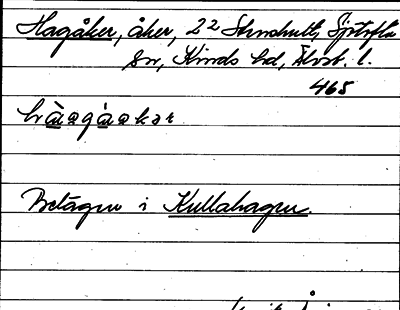 Hagåker, åker, 22 Stenshult, Sjötofta
sn, Kinds hd, Älvsb. l.
465
hàagàakər
Belägen i Kullahagen.